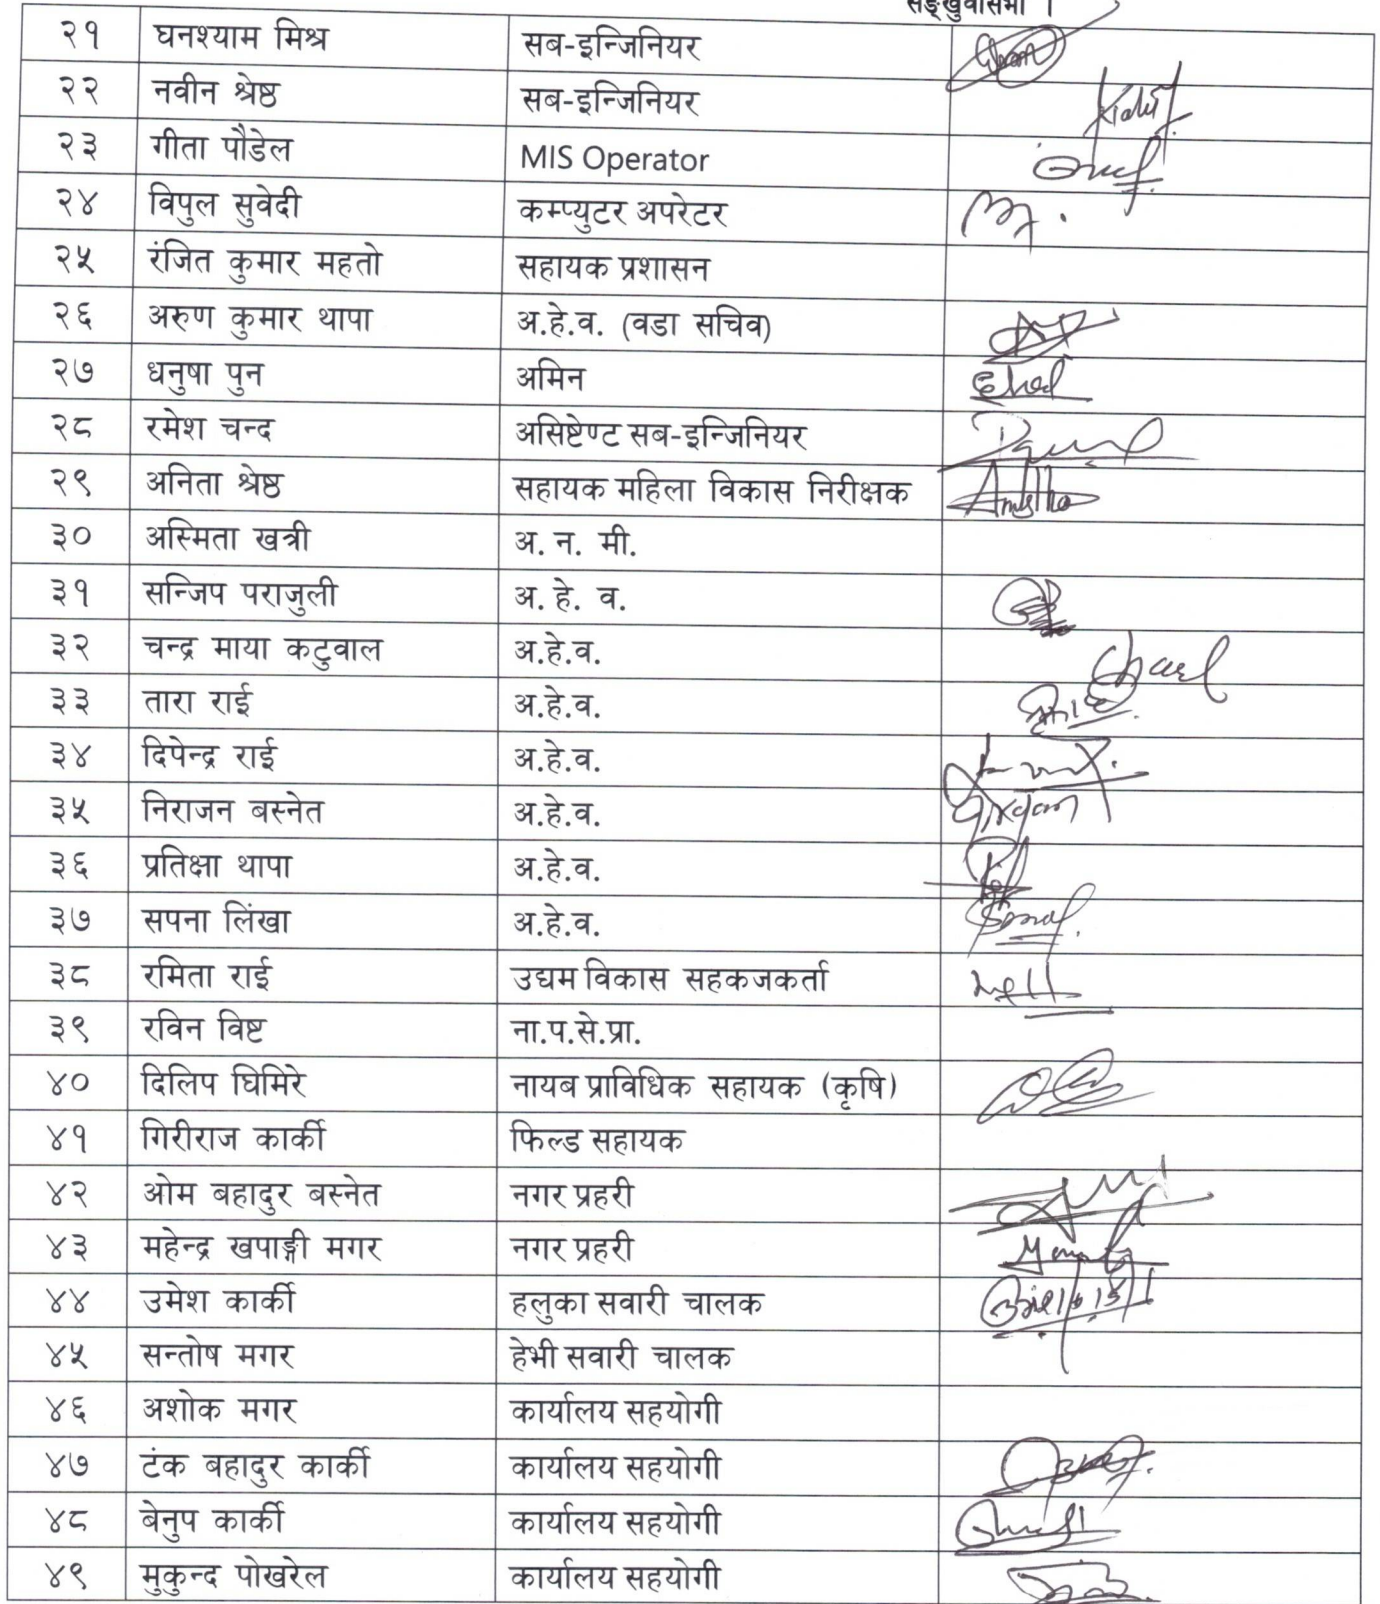 सङ्खुवासभा ।
२१ घनश्याम मिश्र सब-इन्जिनियर
२२ नवीन श्रेष्ठ सब-इन्जिनियर
२३ गीता पौडेल MIS Operator
२४ विपुल सुवेदी कम्प्युटर अपरेटर
२५ रंजित कुमार महतो सहायक प्रशासन
२६ अरुण कुमार थापा अ.हे.व. (वडा सचिव)
२७ धनुषा पुन अमिन
२८ रमेश चन्द असिष्टेण्ट सब-इन्जिनियर
२९ अनिता श्रेष्ठ सहायक महिला विकास निरीक्षक
३० अस्मिता खत्री अ. न. मी.
३१ सन्जिप पराजुली अ. हे. व.
३२ चन्द्र माया कटुवाल अ.हे.व.
३३ तारा राई अ.हे.व.
३४ दिपेन्द्र राई अ.हे.व.
३५ निराजन बस्नेत अ.हे.व.
३६ प्रतिक्षा थापा अ.हे.व.
३७ सपना लिंखा अ.हे.व.
३८ रमिता राई उद्यम विकास सहकजकर्ता
३९ रविन विष्ट ना.प.से.प्रा.
४० दिलिप घिमिरे नायब प्राविधिक सहायक (कृषि)
४१ गिरीराज कार्की फिल्ड सहायक
४२ ओम बहादुर बस्नेत नगर प्रहरी
४३ महेन्द्र खपाङ्गी मगर नगर प्रहरी
४४ उमेश कार्की हलुका सवारी चालक
४५ सन्तोष मगर हेभी सवारी चालक
४६ अशोक मगर कार्यालय सहयोगी
४७ टंक बहादुर कार्की कार्यालय सहयोगी
४८ बेनुप कार्की कार्यालय सहयोगी
४९ मुकुन्द पोखरेल कार्यालय सहयोगी